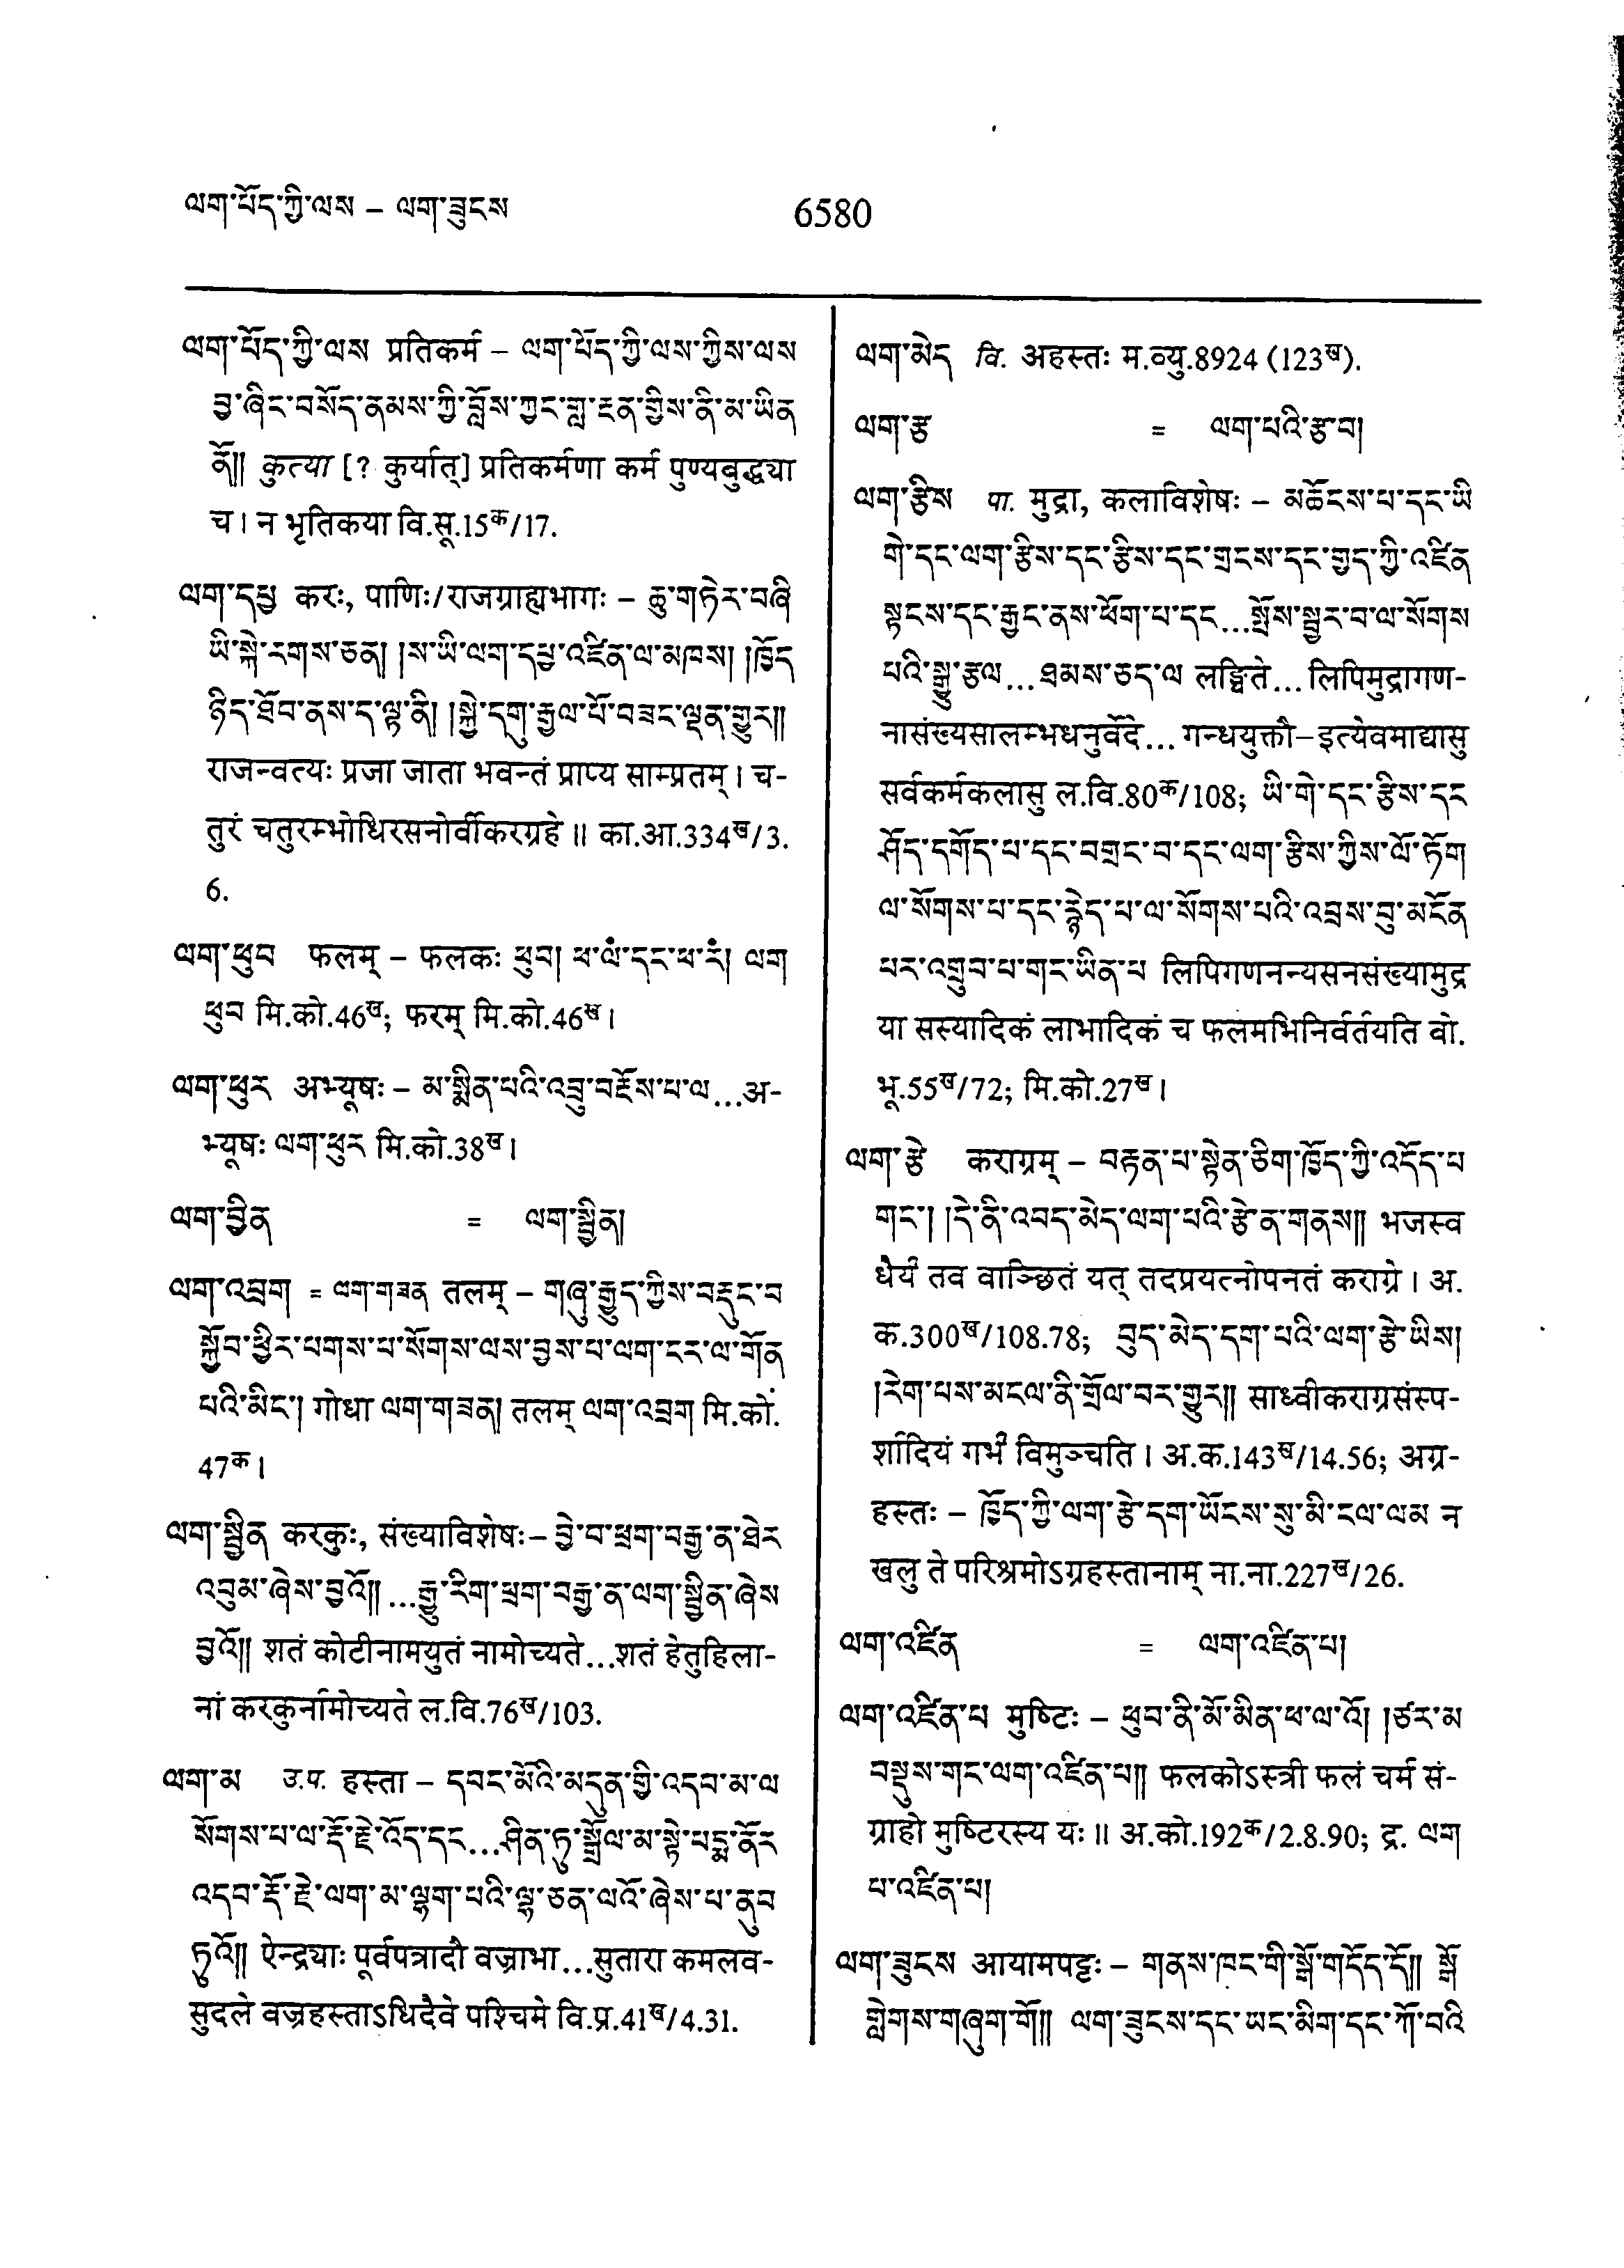 ལག་པོད་ཀྱི་ལས – ལག་ཟུངས
6580
ལག་པོད་ཀྱི་ལས प्रतिकर्म – ལག་པོད་ཀྱི་ལས་ཀྱིས་ལས
བྱ་ཞིང་བསོད་ནམས་ཀྱི་བློས་ཀྱང་གླ་རྔན་གྱིས་ནི་མ་ཡིན
ནོ།། कुत्या [? कुर्यात्] प्रतिकर्मणा कर्म पुण्यबुद्ध्या
च। न भृतिकया वि.सू.15क/17.
ལག་དཔྱ करः, पाणिः/राजग्राह्यभागः – ཆུ་གཏེར་བཞི
ཡི་སྐེ་རགས་ཅན། །ས་ཡི་ལག་དཔྱ་འཛིན་ལ་མཁས། །ཁྱོད
ཉིད་ཐོབ་ནས་ད་ལྟ་ནི། །སྐྱེ་དགུ་རྒྱལ་པོ་བཟང་ལྡན་གྱུར།།
राजन्वत्यः प्रजा जाता भवन्तं प्राप्य साम्प्रतम्। च-
तुरं चतुरम्भोधिरसनोर्वीकरग्रहे॥ का.आ.334ख/3.
6.
ལག་ཕུབ फलम् – फलकः ཕུབ། ཕ་ལཾ་དང་ཕ་རཾ། ལག
ཕུབ मि.को.46ख; फरम् मि.को.46ख।
ལག་ཕུར अभ्यूषः – མ་སྨིན་པའི་འབྲུ་བརྔོས་པ་ལ...अ-
भ्यूषः ལག་ཕུར मि.को.38ख।
ལག་བྱིན = ལག་སྦྱིན།
ལག་འབྲག = ལག་གཟན तलम् – གཞུ་རྒྱུད་ཀྱིས་བརྡུང་བ
སྐྱོབ་ཕྱིར་པགས་པ་སོགས་ལས་བྱས་པ་ལག་ངར་ལ་གོན
པའི་མིང་། गोधा ལག་གཟན། तलम् ལག་འབྲག मि.को.
47क।
ལག་སྦྱིན करकुः, संख्याविशेषः – བྱེ་བ་ཕྲག་བརྒྱ་ན་ཐེར
འབུམ་ཞེས་བྱའོ།། ...རྒྱུ་རིག་ཕྲག་བརྒྱ་ན་ལག་སྦྱིན་ཞེས
བྱའོ།། शतं कोटीनामयुतं नामोच्यते...शतं हेतुहिला-
नां करकुर्नामोच्यते ल.वि.76ख/103.
ལག་མ उ.प. हस्ता – དབང་མོའི་མདུན་གྱི་འདབ་མ་ལ
སོགས་པ་ལ་རྡོ་རྗེ་འོད་དང...ཤིན་ཏུ་སྒྲོལ་མ་སྟེ་པདྨ་ནོར
འདབ་རྡོ་རྗེ་ལག་མ་ལྷག་པའི་ལྷ་ཅན་ལའོ་ཞེས་པ་ནུབ
ཏུའོ།། ऐन्द्र्याः पूर्वपत्रादौ वज्राभा...सुतारा कमलव-
सुदले वज्रहस्ताऽधिदैवे पश्चिमे वि.प्र.41ख/4.31.
ལག་མེད वि. अहस्तः म.व्यु.8924 (123ख).
ལག་རྩ = ལག་པའི་རྩ་བ།
ལག་རྩིས पा. मुद्रा, कलाविशेषः – མཆོངས་པ་དང་ཡི
གེ་དང་ལག་རྩིས་དང་རྩིས་དང་གྲངས་དང་གྱད་ཀྱི་འཛིན
སྟངས་དང་རྒྱང་ནས་ཕོག་པ་དང...སྤོས་སྦྱར་བ་ལ་སོགས
པའི་སྒྱུ་རྩལ...ཐམས་ཅད་ལ लङ्घिते...लिपिमुद्रागण-
नासंख्यसालम्भधनुर्वेदे...गन्धयुक्तौ–इत्येवमाद्यासु
सर्वकर्मकलासु ल.वि.80क/108; ཡི་གེ་དང་རྩིས་དང
ཤོད་དགོད་པ་དང་བགྲང་བ་དང་ལག་རྩིས་ཀྱིས་ལོ་ཏོག
ལ་སོགས་པ་དང་རྙེད་པ་ལ་སོགས་པའི་འབྲས་བུ་མངོན
པར་འགྲུབ་པ་གང་ཡིན་པ लिपिगणनन्यसनसंख्यामुद्र
या सस्यादिकं लाभादिकं च फलमभिनिर्वर्तयति बो.
भू.55ख/72; मि.को.27ख।
ལག་རྩེ कराग्रम् – བརྟན་པ་སྟེན་ཅིག་ཁྱོད་ཀྱི་འདོད་པ
གང་། །དེ་ནི་འབད་མེད་ལག་པའི་རྩེ་ན་གནས།། भजस्व
धैर्यं तव वाञ्छितं यत् तदप्रयत्नोपनतं कराग्रे। अ.
क.300ख/108.78; བུད་མེད་དག་པའི་ལག་རྩེ་ཡིས།
།རེག་པས་མངལ་ནི་གྲོལ་བར་གྱུར།། साध्वीकराग्रसंस्प-
र्शादियं गर्भं विमुञ्चति। अ.क.143ख/14.56; अग्र-
हस्तः – ཁྱོད་ཀྱི་ལག་རྩེ་དག་ཡོངས་སུ་མི་ངལ་ལམ न
खलु ते परिश्रमोऽग्रहस्तानाम् ना.ना.227ख/26.
ལག་འཛིན = ལག་འཛིན་པ།
ལག་འཛིན་པ मुष्टिः – ཕུབ་ནི་མོ་མིན་ཕ་ལ་འོ། །ཙར་མ
བསྡུས་གང་ལག་འཛིན་པ།། फलकोऽस्त्री फलं चर्म सं-
ग्राहो मुष्टिरस्य यः॥ अ.को.192क/2.8.90; द्र. ལག
པ་འཛིན་པ།
ལག་ཟུངས आयामपट्टः – གནས་ཁང་གི་སྒོ་གདོད་དོ།། སྒོ
གླེགས་གཞུག་གོ།། ལག་ཟུངས་དང་ཡང་མིག་དང་ཀོ་བའི